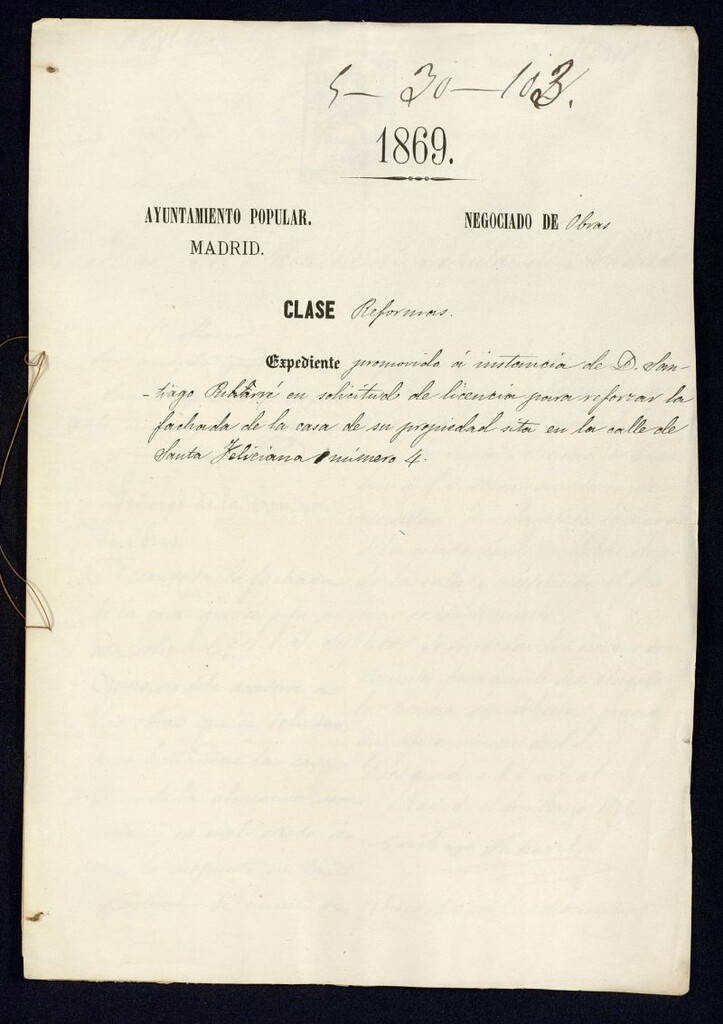 5-30-103.
1869.
AYUNTAMIENTO POPULAR.
MADRID.
NEGOCIADO DE Obras
CLASE Reformas.
Expediente promovido á instancia de D. San-
-tiago en solicitud de licencia para reforzar la
fachada de la casa de su propiedad sita en la calle de
Santa Feliciana número 4.